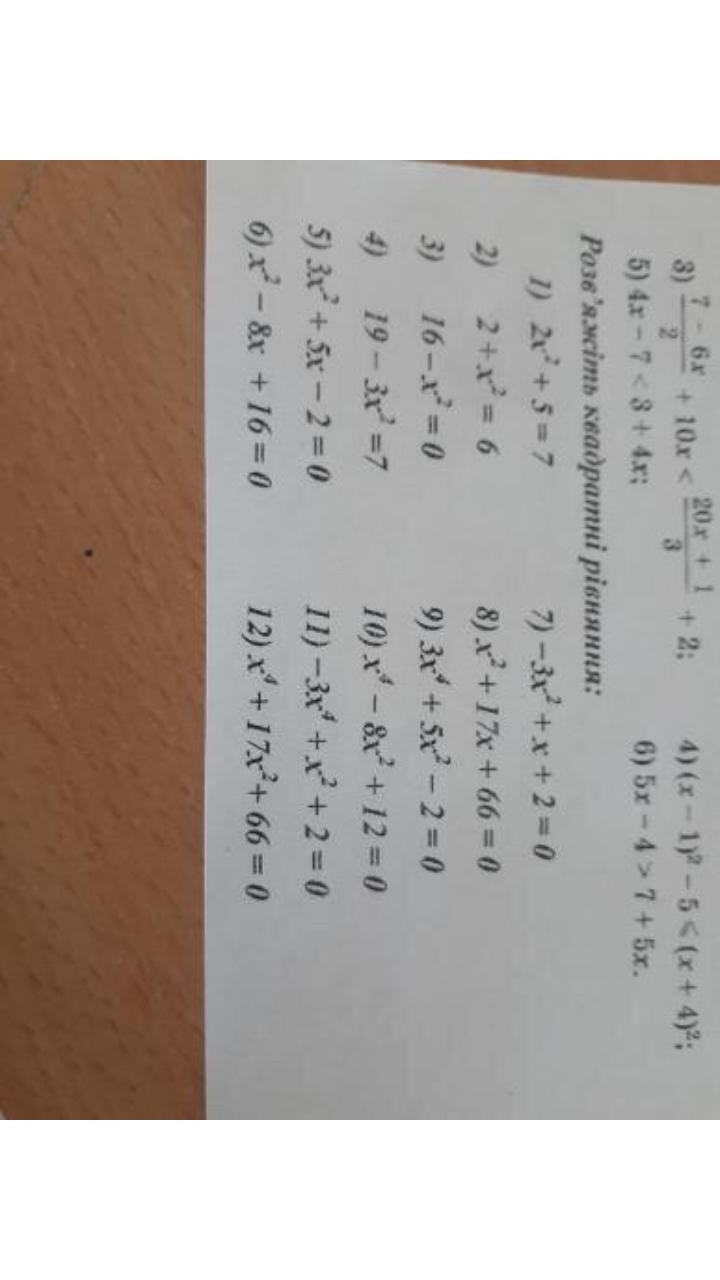 3) (7 − 6x)/2 + 10x < (20x + 1)/3 + 2; 4) (x − 1)² − 5 ⩽ (x + 4)²;
5) 4x − 7 < 3 + 4x; 6) 5x − 4 > 7 + 5x.
Розв’яжіть квадратні рівняння:
1) 2x² + 5 = 7 7) −3x² + x + 2 = 0
2) 2 + x² = 6 8) x² + 17x + 66 = 0
3) 16 − x² = 0 9) 3x⁴ + 5x² − 2 = 0
4) 19 − 3x² = 7 10) x⁴ − 8x² + 12 = 0
5) 3x² + 5x − 2 = 0 11) −3x⁴ + x² + 2 = 0
6) x² − 8x + 16 = 0 12) x⁴ + 17x² + 66 = 0